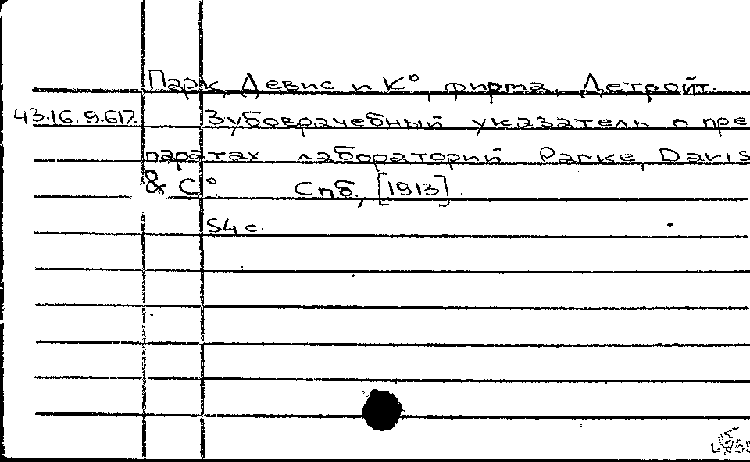 Парк, Девис и К°, фирма, Детройт.
43.16.9.617. Зубоврачебный указатель о пре
паратах лабораторий Parke, Davis
& C°. Спб, [1913].
54 с.